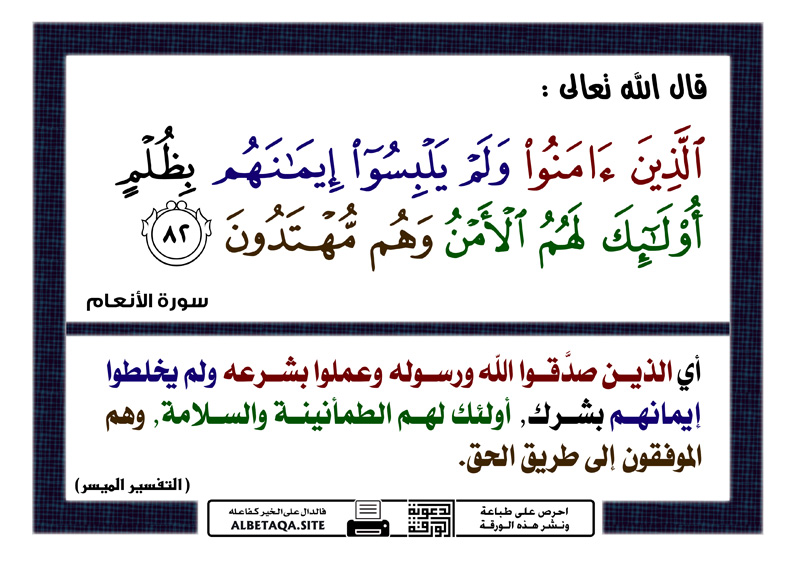 قال الله تعالى :
ٱلَّذِينَ ءَامَنُوا۟ وَلَمْ يَلْبِسُوٓا۟ إِيمَـٰنَهُم بِظُلْمٍ
أُو۟لَـٰٓئِكَ لَهُمُ ٱلْأَمْنُ وَهُم مُّهْتَدُونَ ٨٢
سورة الأنعام
أي الذيـن صدَّقـوا الله ورسـوله وعملوا بشـرعه ولم يخلطوا
إيمانـهـم بشـرك, أولئك لهـم الطمأنينـة والسـلامة, وهم
الموفقون إلى طريق الحق.
(التفسير الميسر)
احرص على طباعة
ونشر هذه الورقة
الورقة
الدعوية
فالدال على الخير كفاعله
ALBETAQA.SITE